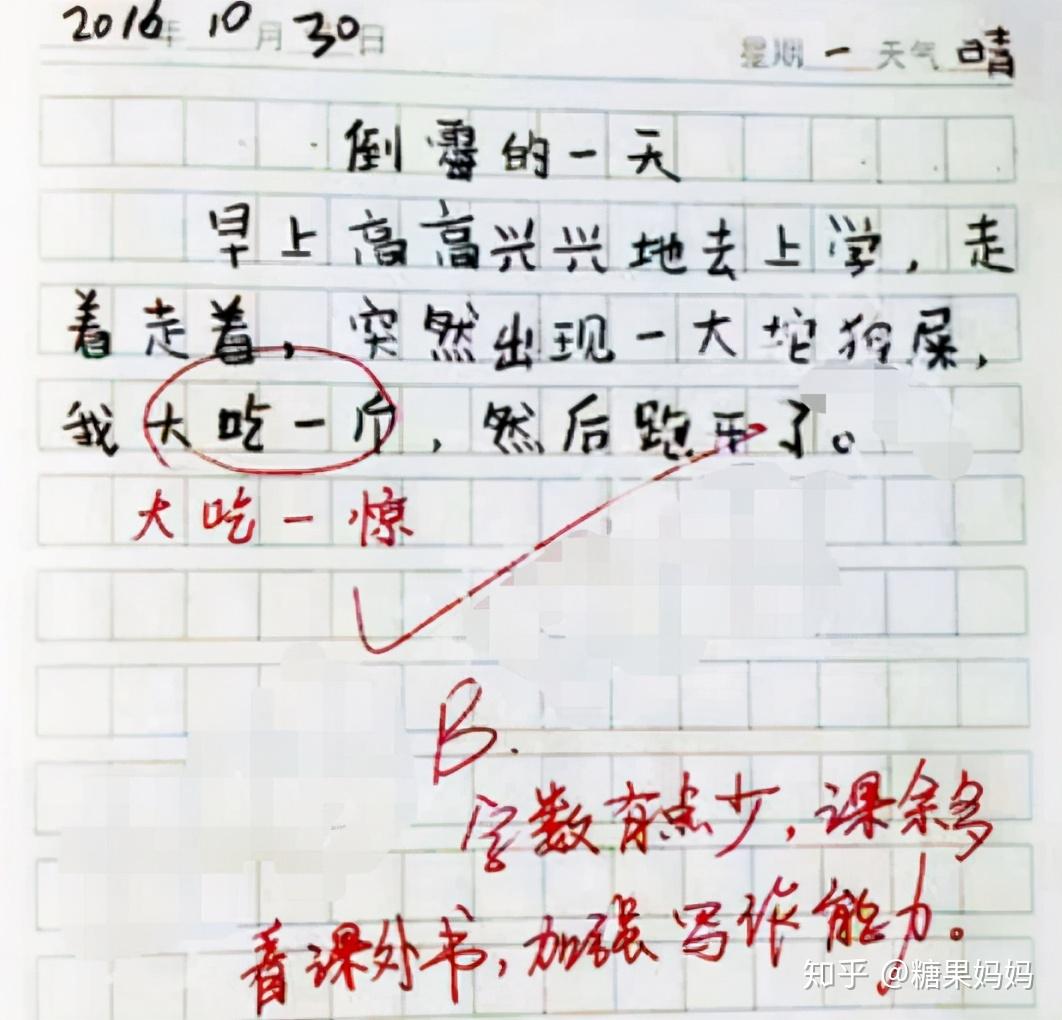 2016年 10月 30日 星期 一 天气 晴
倒霉的一天
早上高高兴兴地去上学，走
着走着，突然出现一大坨狗屎，
我大吃一斤，然后跑开了。
大吃一惊
B.
字数有点少，课余多
看课外书，加强写作能力。
知乎 @糖果妈妈